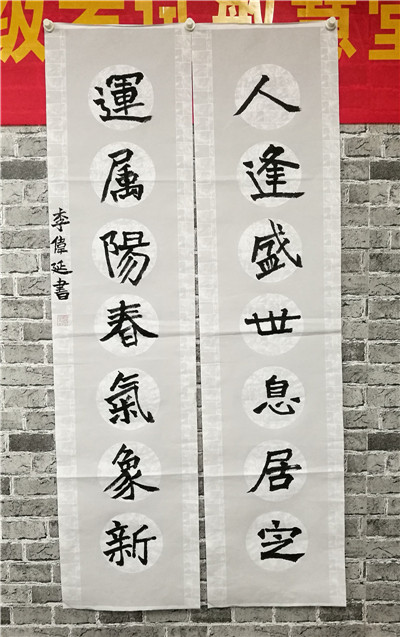 人逢盛世息居定
運属陽春氣象新
李偉延書